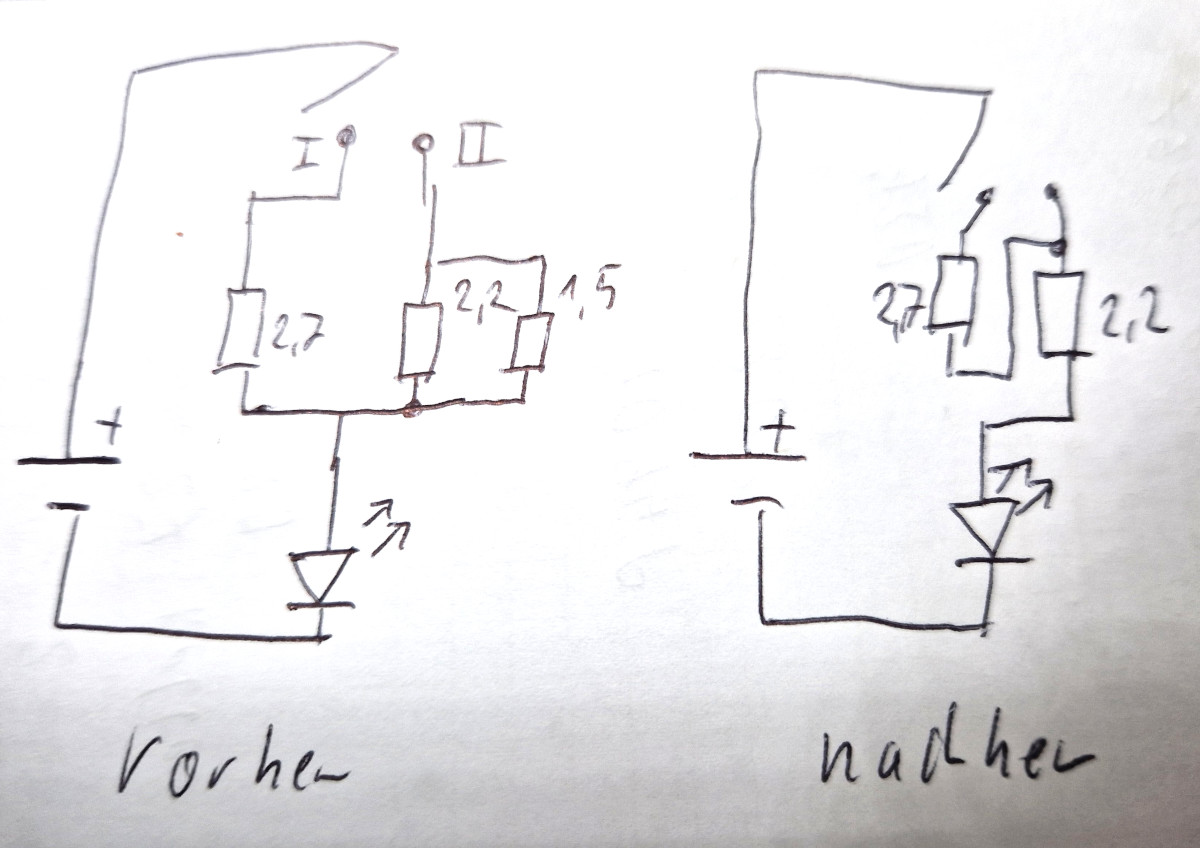 I II
2,2 1,5
2,7
+
2,7 2,2
+
vorher
nachher